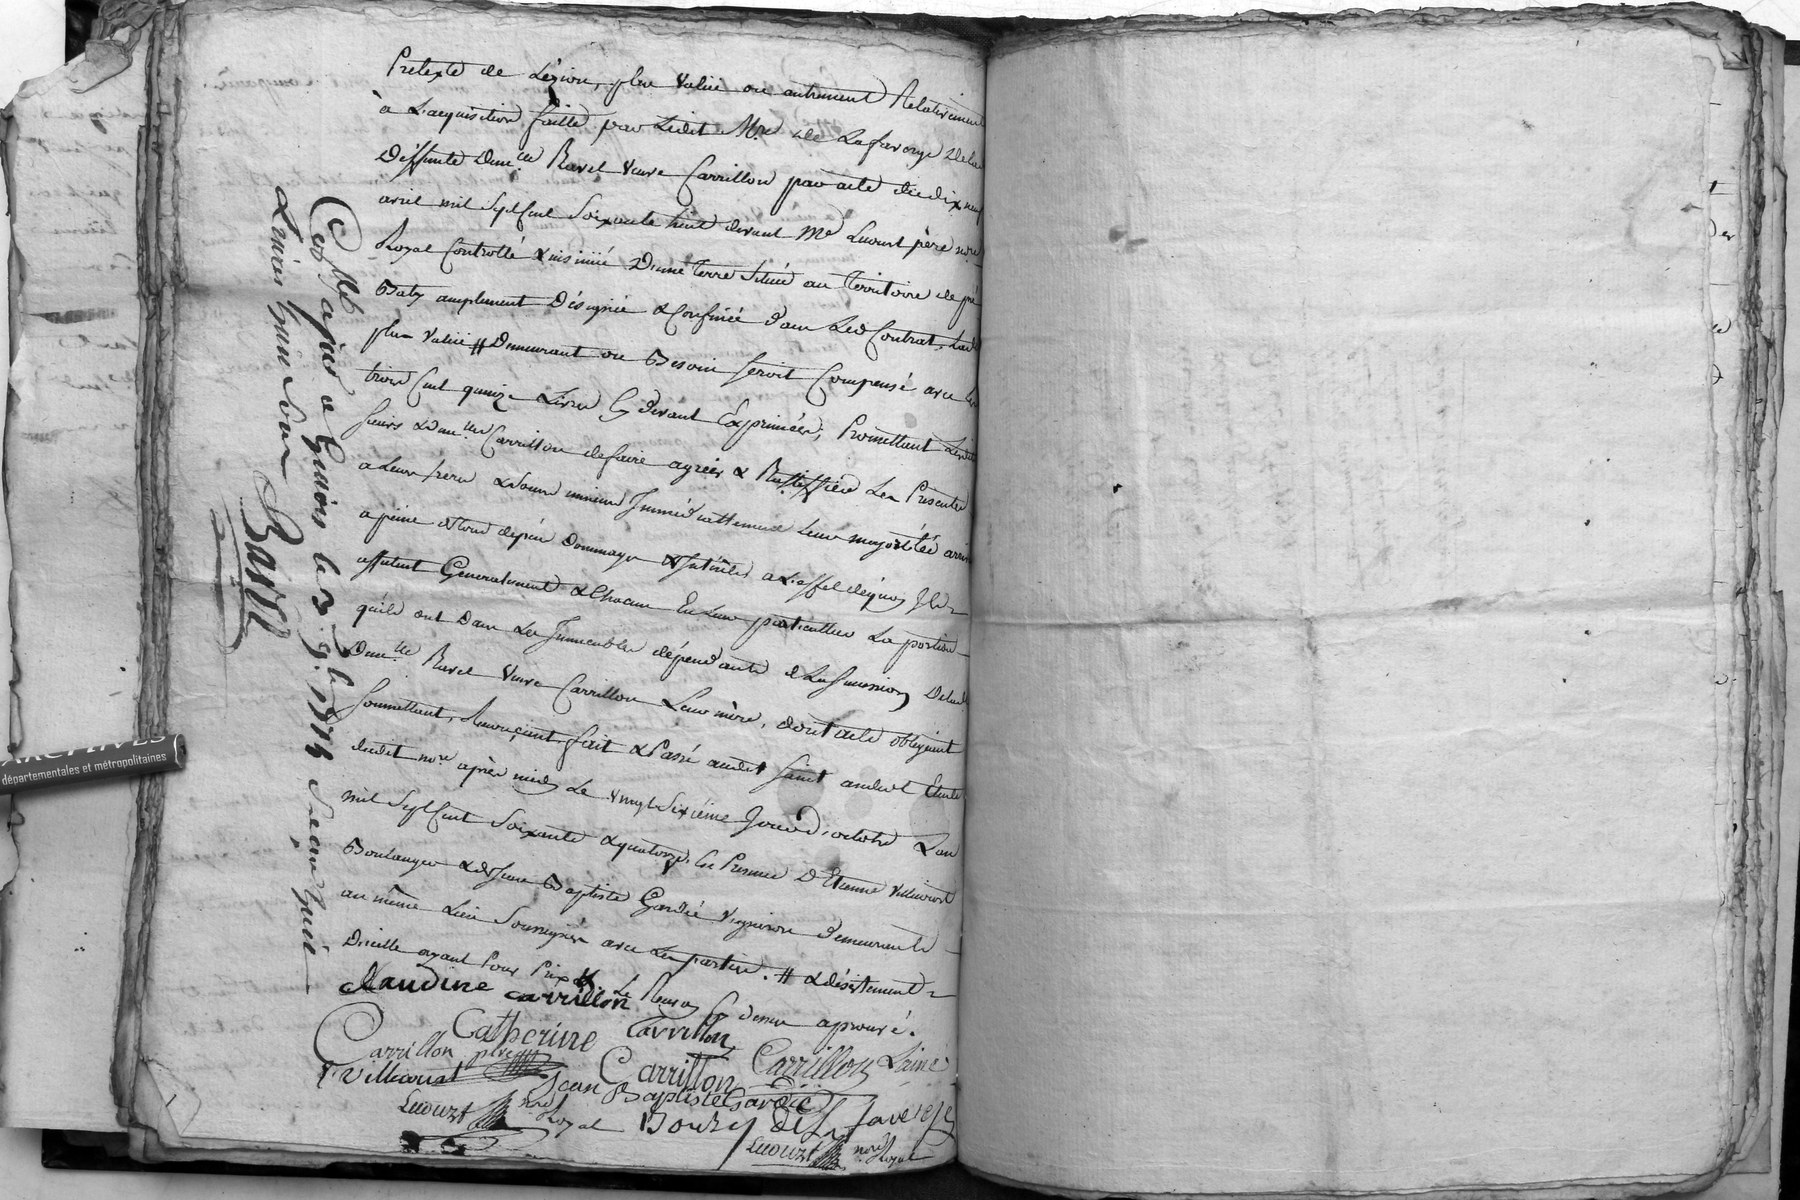 Pretexte de Lezion, plus valüe ou autrement Relativement
à L'acquisition faitte par Ledit Mre de Lafaverge Dela
Deffunte Dem.lle Ravel veuve Carrillon par acte du dix neuf
avril mil Septcent Soixante huit devant Me Luouzt père nore
Royal Controllé & insinüé D'une Terre Scituée au Territoire de pré
Baby amplement Désignée & Confinée dans Led Contrat, Lad
plus valüe # Demeurant ou Besoin seroit Compensé avec les
trois Cent quinze Livres Cy devant Exprimées; Promettant Lesdits
sieurs & Dem.lles Carrillon defaire agréer & Ratiffier Les Presentes
a Leurs freres & Soeurs mineurs Immédiattement Leur majorité arrivée
a peine detous depens Dommages & Interets a L'effet dequoy Ils
affectent Generalement & Chacun En Leur particullier La portion
qu'ils ont Dans Les Immeubles dépendants de La succession Delad
Dem.lle Ravel Veuve Carrillon Leur mère, dont acte obligeant
Soumettant, Renonçant, fait & Passé audit Saint andeol Etude
dudit nore après midy Le vingt Sixième Jour d'octobre L'an
mil Septcent Soixante & quatorze, En Presence D'Etienne Villeurst
Boulanger & de Jean Baptiste Gardié Vigneron demeurants
au même Lieu Soussignés avec Les parties. # & désistement
D'icelle ayant Pour Prix Le Renvoy Cy dessus aprouvé.
Claudine carrillon
Catherine Carrillon
Carrillon ptre Carrillon Carrillon L'ainé
Villeurst Jean Baptiste Gardié
Luouzt nore Royal Bouzy De Lafaverge
Luouzt nore Royal
Conttlé a Givors le 3 9.bre 1774 Reçu huit
Livres huit Sous Basset
ARCHIVES
départementales et métropolitaines